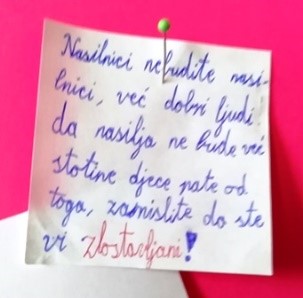 Nasilnici nebudite nasi-
lnici, već dobri ljudi!
da nasilja ne bude već
stotine djece pate od
toga, zamislite da ste
vi zlostavljani!